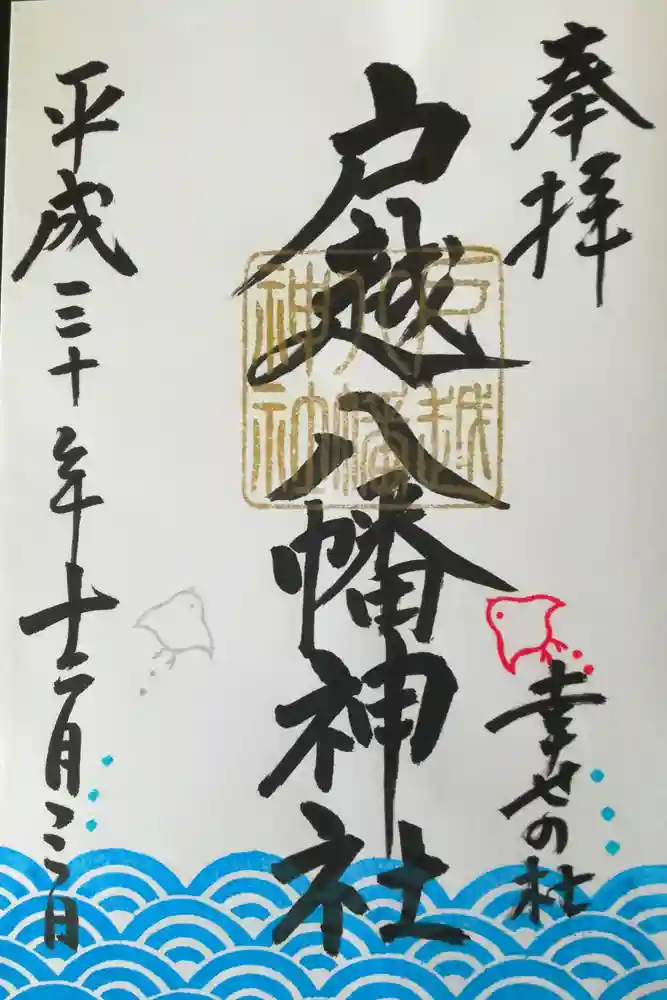 奉拝
幸せの杜
戸越八幡神社
戸越八幡神社
平成三十年十二月二日